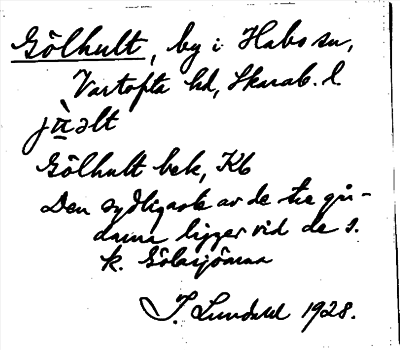 Gölhult, by i Habo sn,
Vartofta hd, Skarab. l
Gölhult bek, Kb
Den sydligaste av de tre går-
darna ligger vid de s.
k. Gölasjöarna
J. Lundahl 1928.